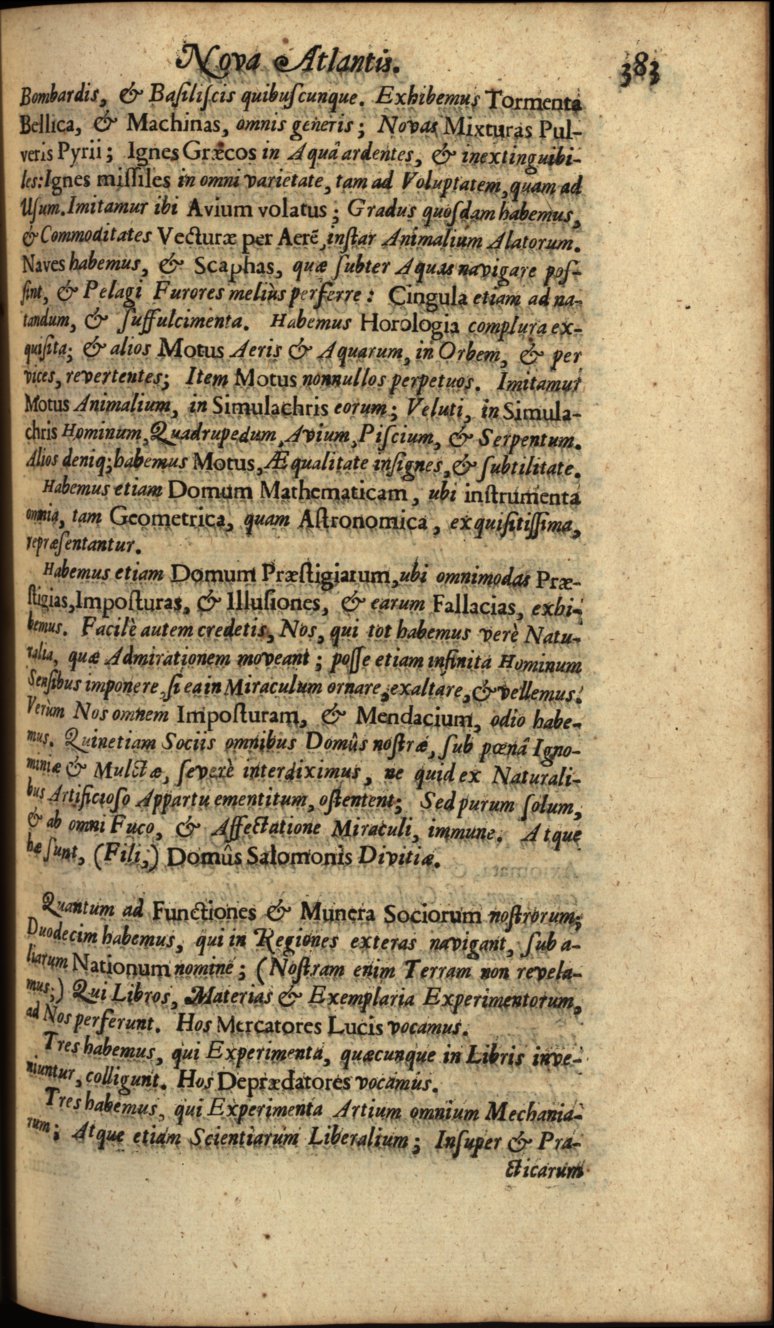 Nova Atlantis. 383
Bombardis, & Basiliscis quibuscunque. Exhibemus Tormenta
Bellica, & Machinas, omnis generis; Novas Mixturas Pul-
veris Pyrii; Ignes Græcos in Aquâ ardentes, & inextinguibi-
les: Ignes missiles in omni varietate, tam ad Voluptatem, quam ad
Usum. Imitamur ibi Avium volatus; Gradus quosdam habemus,
& Commoditates Vecturæ per Aerē, instar Animalium Alatorum.
Naves habemus, & Scaphas, quæ subter Aquas navigare pos-
sint, & Pelagi Furores meliùs perferre: Cingula etiam ad na-
tandum, & suffulcimenta. Habemus Horologia complura ex-
quisita; & alios Motus Aeris & Aquarum, in Orbem, & per
vices, revertentes; Item Motus nonnullos perpetuos. Imitamur
Motus Animalium, in Simulachris eorum; Veluti, in Simula-
chris Hominum, Quadrupedum, Avium, Piscium, & Serpentum.
Alios deniq; habemus Motus, Æqualitate insignes, & subtilitate.
Habemus etiam Domum Mathematicam, ubi instrumenta
omnia, tam Geometrica, quam Astronomica, exquisitissima,
repræsentantur.
Habemus etiam Domum Præstigiarum, ubi omnimodas Præ-
stigias, Imposturas, & Illusiones, & earum Fallacias, exhi-
bemus. Facilè autem credetis, Nos, qui tot habemus verè Natu-
ralia, quæ Admirationem moveant; posse etiam infinita Hominum
Sensibus imponere, si ea in Miraculum ornare, exaltare, & vellemus.
Verùm Nos omnem Imposturam, & Mendacium, odio habe-
mus. Quinetiam Sociis omnibus Domûs nostræ, sub pœnâ Igno-
miniæ & Mulctæ, severè interdiximus, ne quid ex Naturali-
bus Artificioso Appartu ementitum, ostentent; Sed purum solum,
& ab omni Fuco, & Affectatione Miraculi, immune. Atque
hæ sunt, (Fili,) Domûs Salomonis Divitiæ.
Quantum ad Functiones & Munera Sociorum nostrorum;
Duodecim habemus, qui in Regiones exteras navigant, sub a-
liarum Nationum nomine; (Nostram enim Terram non revela-
mus;) Qui Libros, Materias & Exemplaria Experimentorum,
ad Nos perferunt. Hos Mercatores Lucis vocamus.
Tres habemus, qui Experimenta, quæcunque in Libris inve-
niuntur, colligunt. Hos Deprædatores vocamus.
Tres habemus, qui Experimenta Artium omnium Mechania-
rum; Atque etiam Scientiarum Liberalium; Insuper & Pra-
cticarum